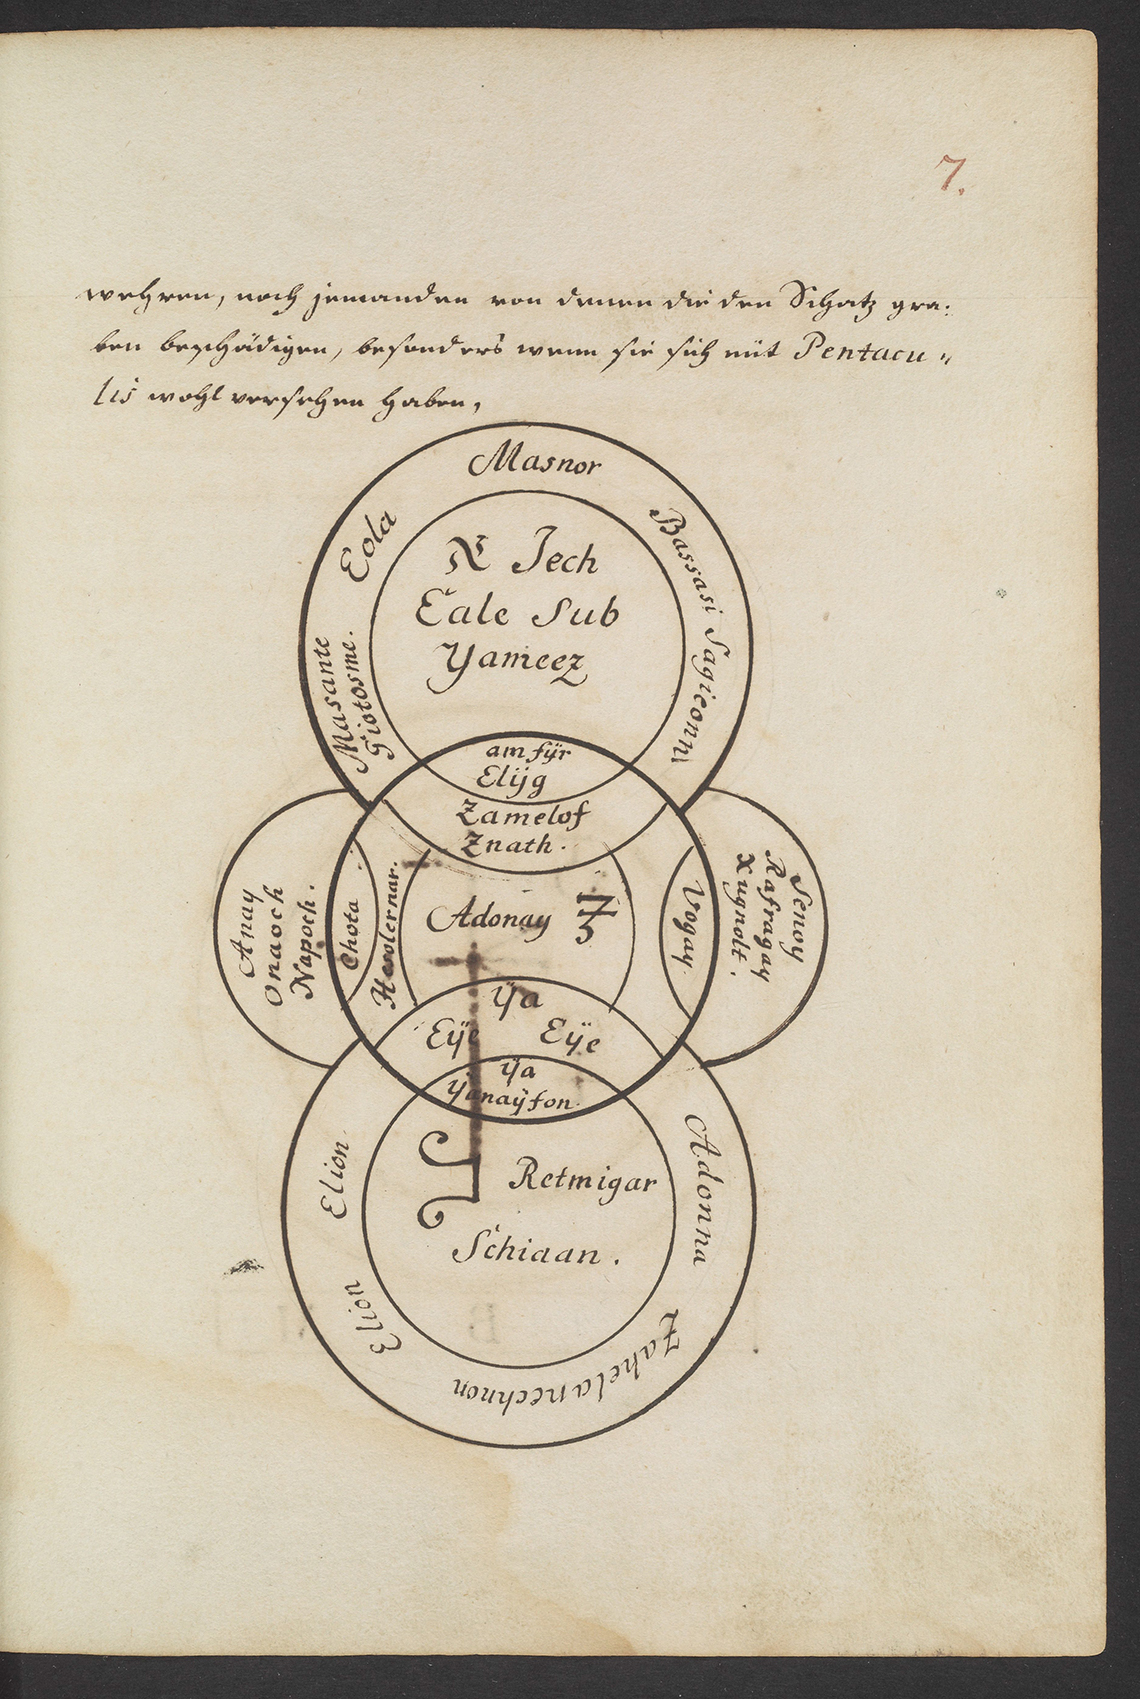 7.
wehren, noch jemanden von denen die den Schatz gra:
ben beschädigen, besonders wenn sie sich mit Pentacu〃
lis wohl versehen haben,
Masnor
Eola
Bassasi Sagieonni
Masante
Giotosme.
Jech
Eale Sub
Yameez
am fÿr
Elÿg
Zamelof
Znath.
Anay
Onaoch
Napoch.
Chota
Heolernar.
Adonay
Vogay
Senoy
Rafragay
Xugnolt.
Ÿa
Eÿe Eÿe
ÿa
Ÿanaÿfon.
Elion
Elion
Retmigar
Schiaan.
Adonna
Zahelanechnon